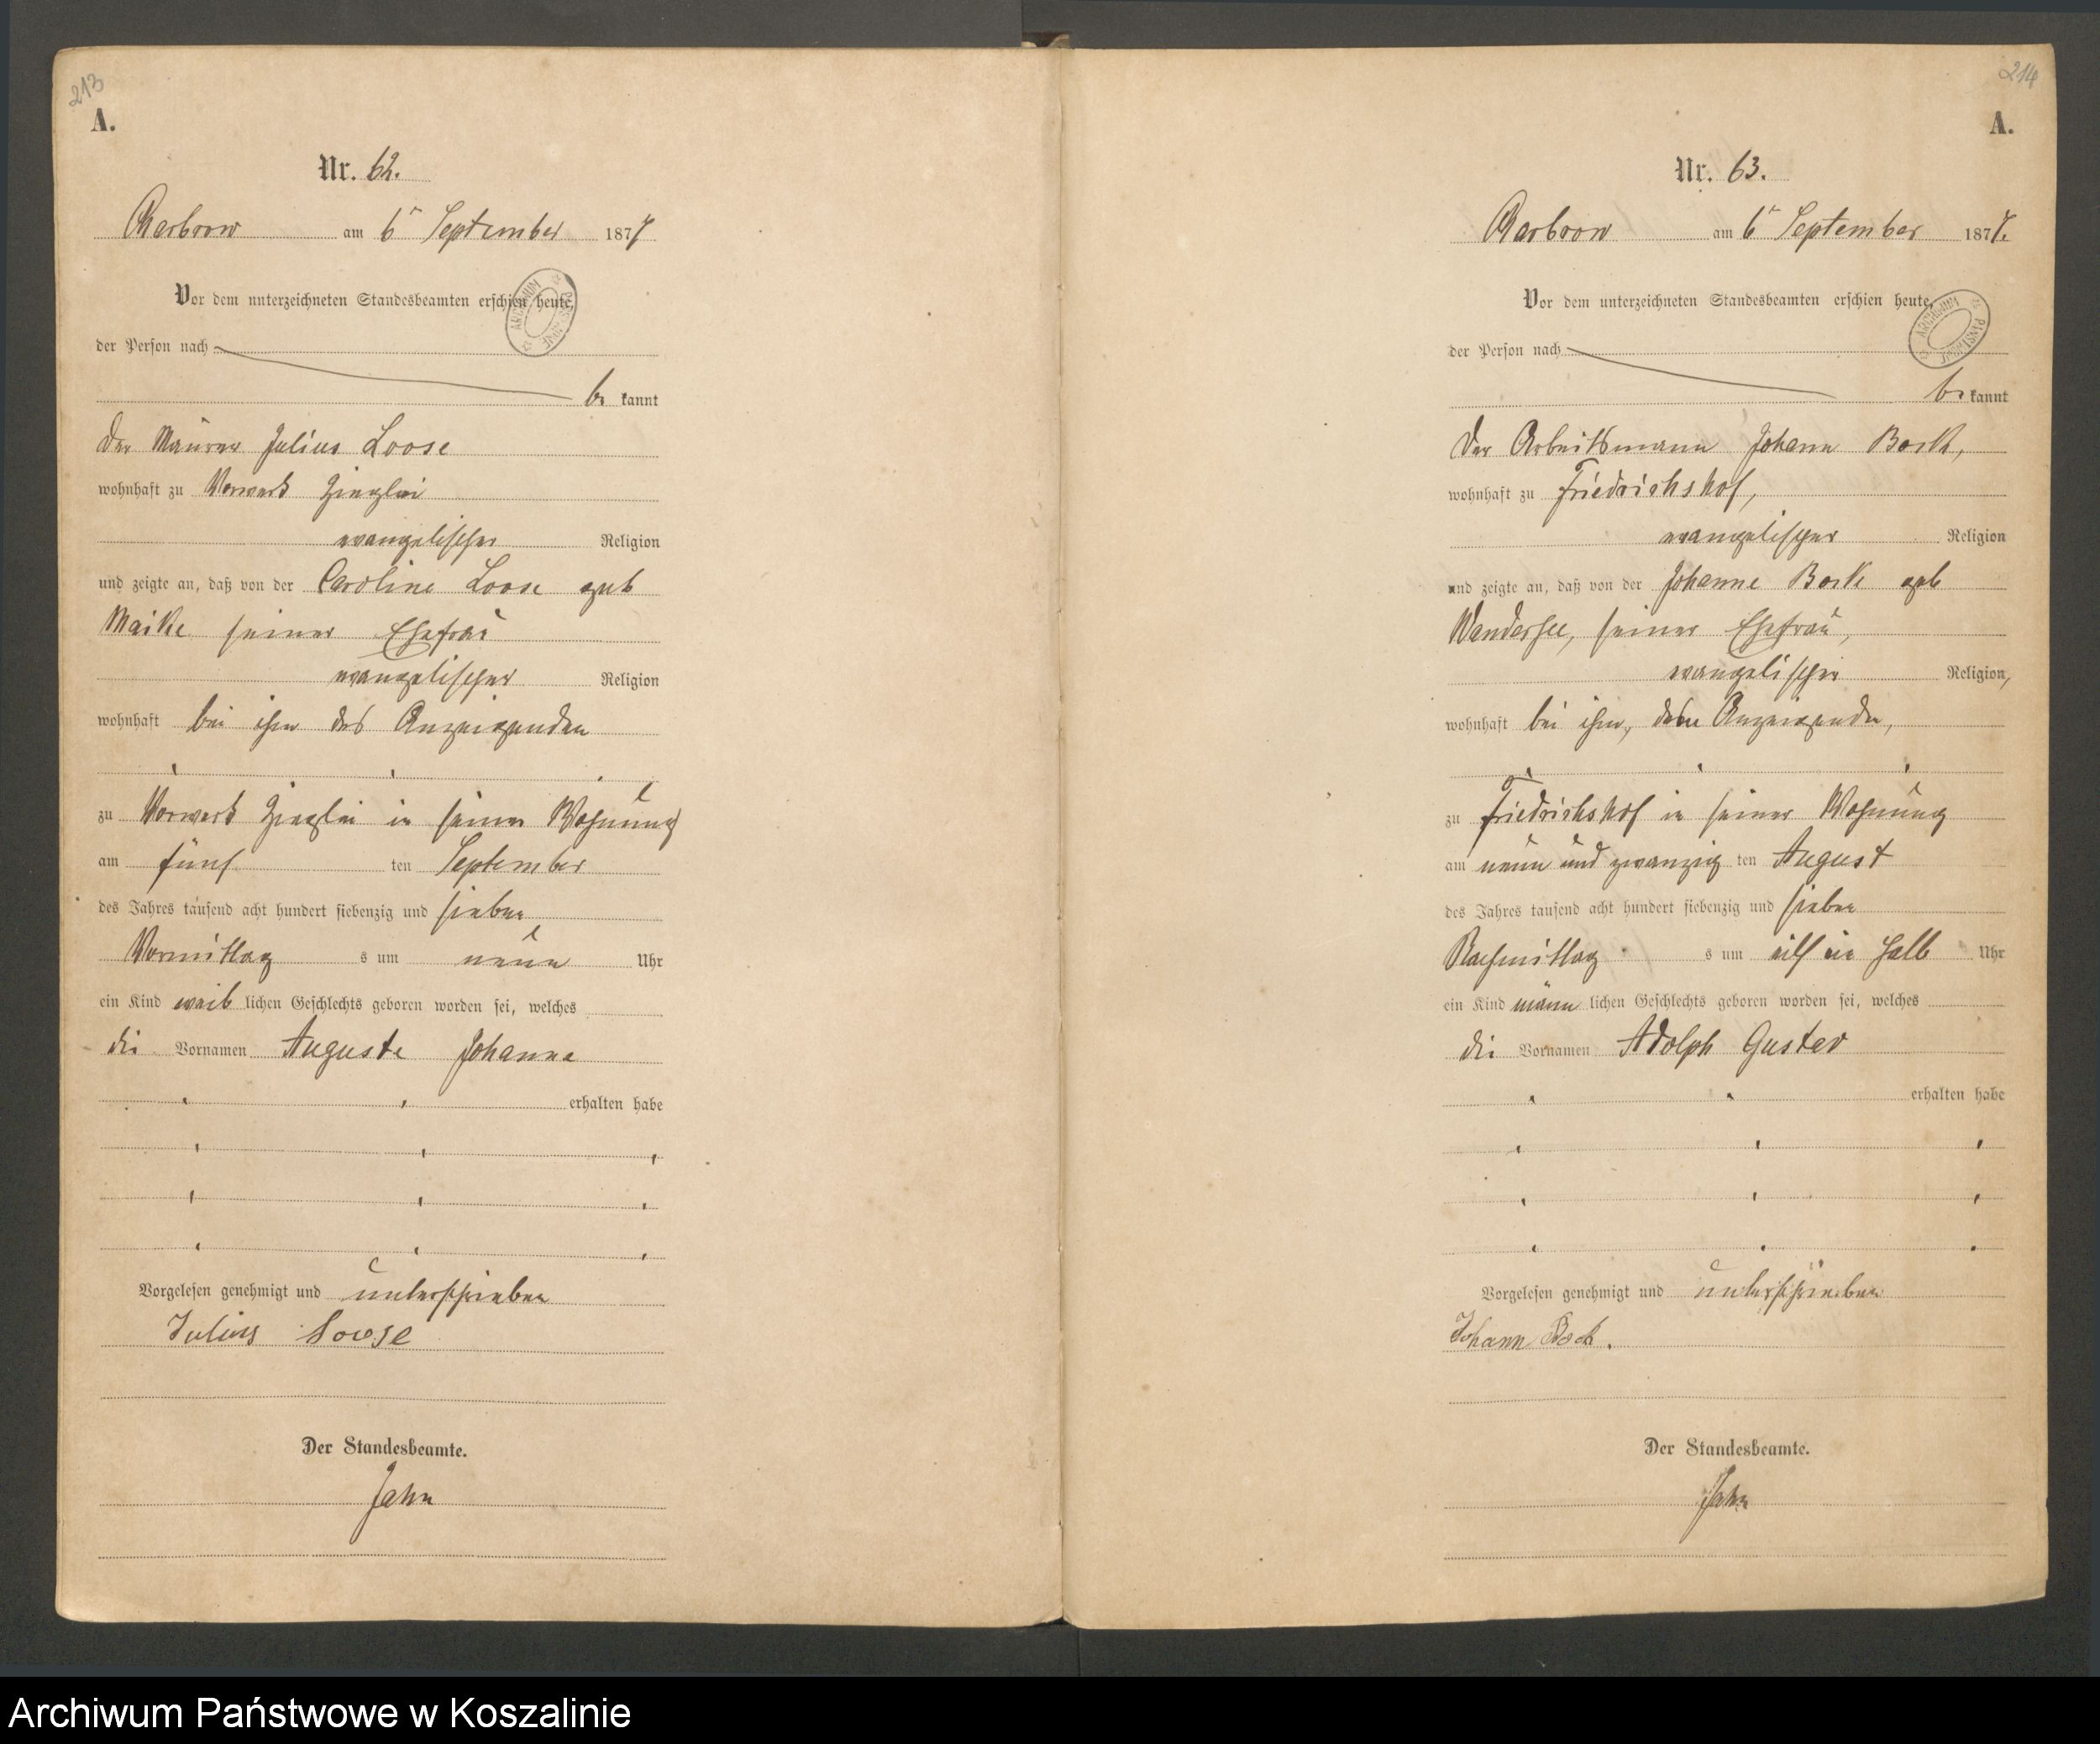 213
A.
Nr. 62.
Charbrow am 6 September 1877
Vor dem unterzeichneten Standesbeamten erschien heute,
der Person nach
be kannt
der Maurer Julius Loose
wohnhaft zu Vorwerk Zieglei
evangelischer Religion
und zeigte an, daß von der Caroline Loose geb
Maike seiner Ehefrau
evangelischer Religion
wohnhaft bei ihm des Anzeigenden
zu Vorwerk Zieglei in seiner Wohnung
am fünf ten September
des Jahres tausend acht hundert siebenzig und sieben
Vormittag s um neun Uhr
ein Kind weib lichen Geschlechts geboren worden sei, welches
die Vornamen Auguste Johanna
erhalten habe
Vorgelesen genehmigt und unterschrieben
Julius Loose
Der Standesbeamte.
Jahn
214
A.
Nr. 63.
Charbrow am 6 September 1877.
Vor dem unterzeichneten Standesbeamten erschien heute,
der Person nach
be kannt
der Arbeitsmann Johann Bock,
wohnhaft zu Friedrichshof,
evangelischer Religion
und zeigte an, daß von der Johanne Bock geb
Wandersee, seiner Ehefrau,
evangelischer Religion,
wohnhaft bei ihm, dem Anzeigenden,
zu Friedrichshof in seiner Wohnung
am neun und zwanzig ten August
des Jahres tausend acht hundert siebenzig und sieben
Nachmittag s um elf ein halb Uhr
ein Kind männ lichen Geschlechts geboren worden sei, welches
die Vornamen Adolph Gustav
erhalten habe
Vorgelesen genehmigt und unterschrieben
Johann Bock.
Der Standesbeamte.
Jahn
Archiwum Państwowe w Koszalinie